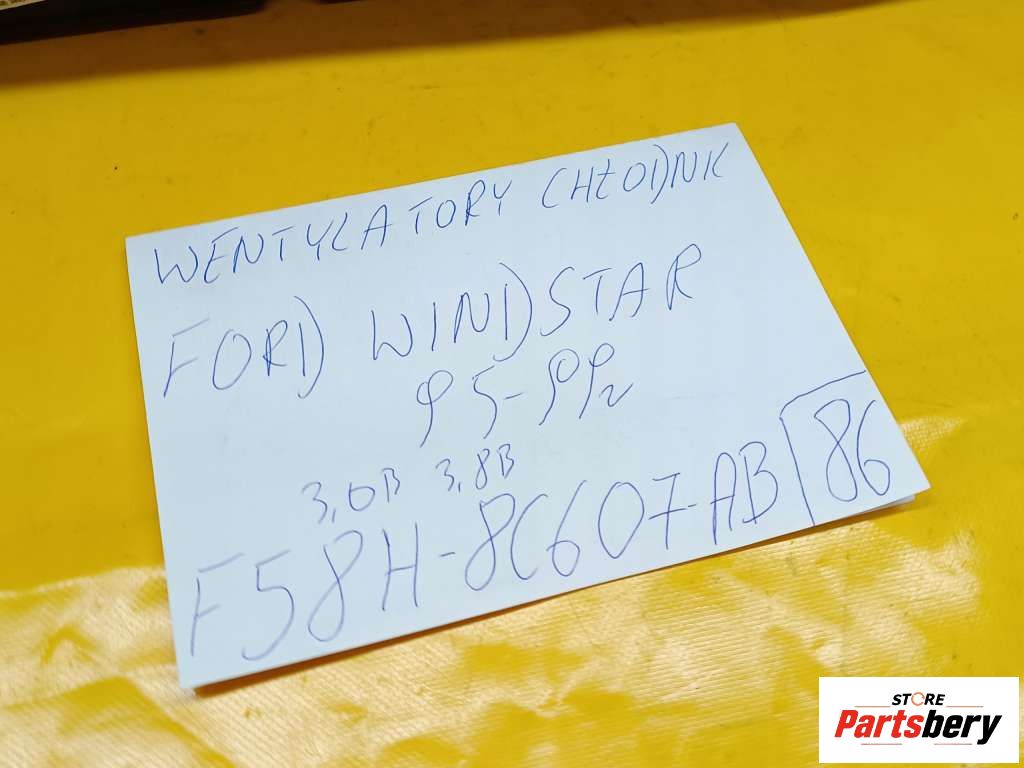 WENTYLATORY CHŁODNIC
FORD WINDSTAR
95-99r
3,0B 3,8B
F58H-8C607-AB 86
STORE
Partsbery